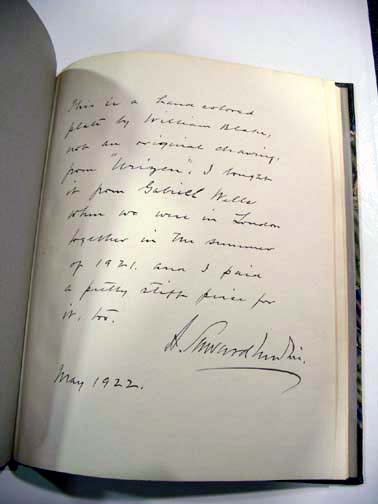 This is a hand colored
plate by William Blake,
not an original drawing,
from "Urizen". I bought
it from Gabriel Wells
when we were in London
together in the summer
of 1921. and I paid
a pretty stiff price for
it, too.
A. Edward Newton.
May 1922.